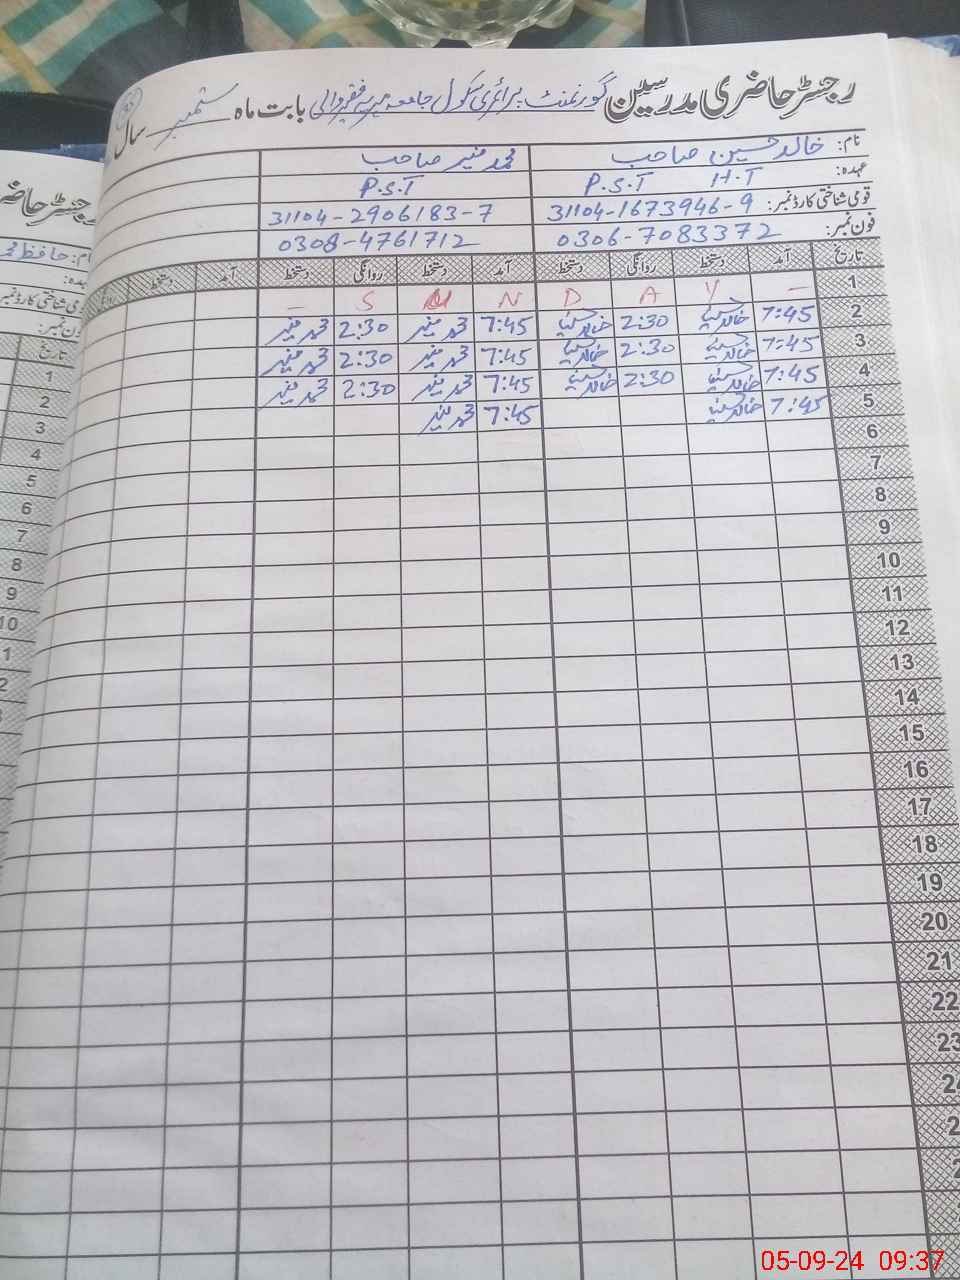 رجسٹر حاضری مدرسین گورنمنٹ پرائمری سکول جامعہ بابت ماہ ستمبر سال
نام: خالد حسین صاحب محمد منیر صاحب
عہدہ: P.S.T H.T P.S.T
قومی شناختی کارڈ نمبر: 31104-1673946-9 31104-2906183-7
فون نمبر: 0306-7083372 0308-4761712
تاریخ آمد دستخط روانگی دستخط آمد دستخط روانگی دستخط آمد دستخط
1 - Y A D N S -
2 7:45 خالد حسین 2:30 خالد حسین 7:45 محمد منیر 2:30 محمد منیر
3 7:45 خالد حسین 2:30 خالد حسین 7:45 محمد منیر 2:30 محمد منیر
4 7:45 خالد حسین 2:30 خالد حسین 7:45 محمد منیر 2:30 محمد منیر
5 7:45 خالد حسین 7:45 محمد منیر
6
7
8
9
10
11
12
13
14
15
16
17
18
19
20
21
22
23
رجسٹر
نام: حافظ
عہدہ:
فون نمبر:
تاریخ
1
2
3
4
5
6
7
8
9
10
05-09-24 09:37